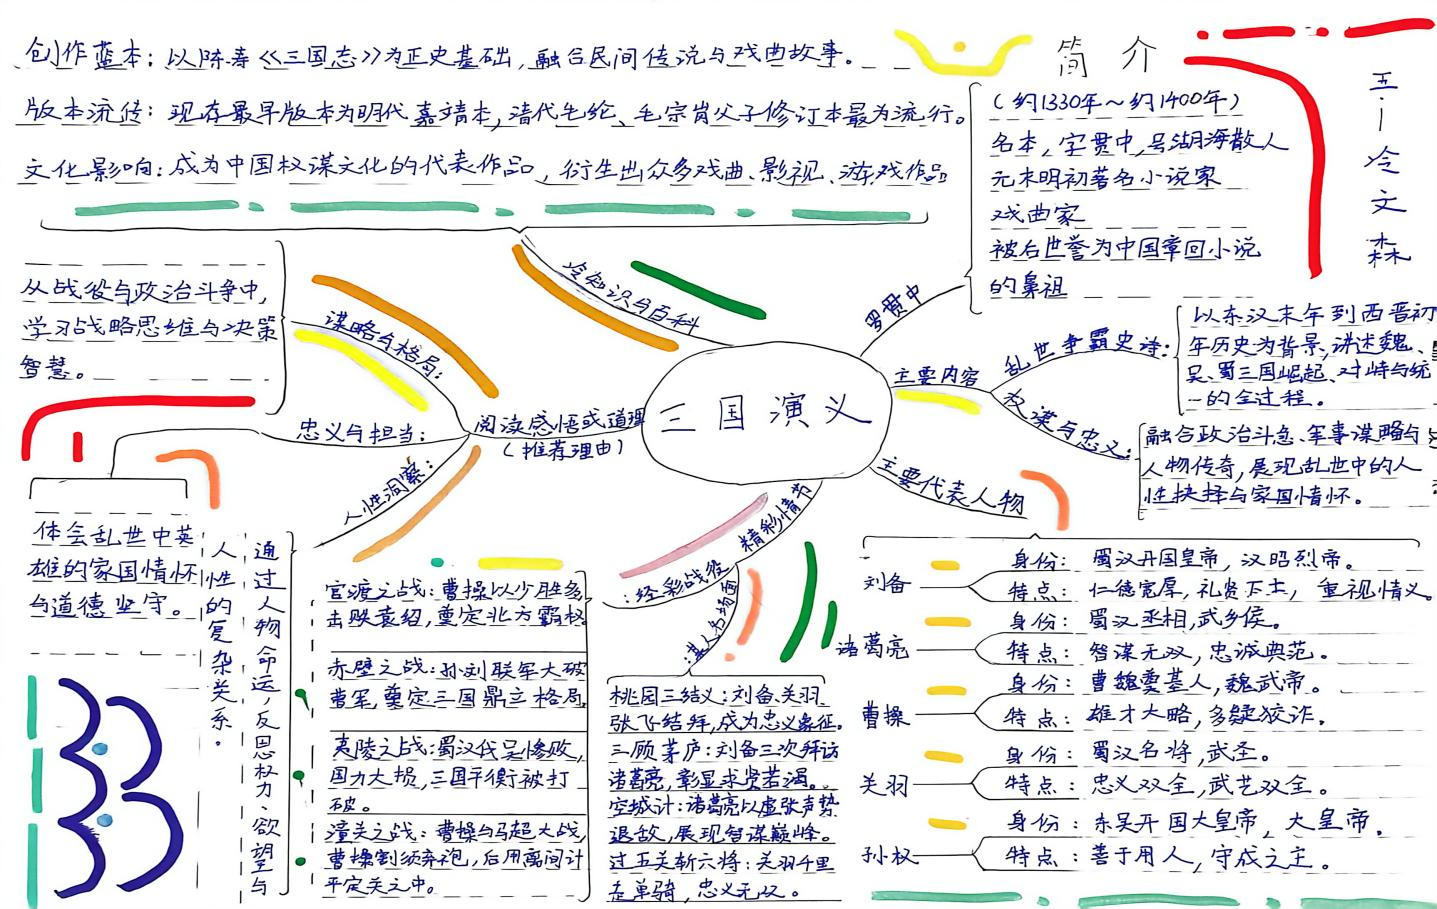 创作蓝本：以陈寿《三国志》为正史基础，融合民间传说与戏曲故事。
版本流传：现存最早版本为明代嘉靖本，清代毛纶、毛宗岗父子修订本最为流行。
文化影响：成为中国权谋文化的代表作品，衍生出众多戏曲、影视、游戏作品
冷知识与百科
简介
五一冷文森
（约1330年～约1400年）
名本，字贯中，号湖海散人
元末明初著名小说家
戏曲家
被后世誉为中国章回小说
的鼻祖
罗贯中
三国演义
主要内容
乱世争霸史诗：
以东汉末年到西晋初
年历史为背景，讲述魏、
吴、蜀三国崛起、对峙与统
一的全过程。
权谋与忠义：
融合政治斗争、军事谋略与
人物传奇，展现乱世中的人
性抉择与家国情怀。
主要代表人物
刘备
身份：蜀汉开国皇帝，汉昭烈帝。
特点：仁德宽厚，礼贤下士，重视情义。
诸葛亮
身份：蜀汉丞相，武乡侯。
特点：智谋无双，忠诚典范。
曹操
身份：曹魏奠基人，魏武帝。
特点：雄才大略，多疑狡诈。
关羽
身份：蜀汉名将，武圣。
特点：忠义双全，武艺双全。
孙权
身份：东吴开国大皇帝，大皇帝。
特点：善于用人，守成之主。
精彩情节
经彩战役：
官渡之战：曹操以少胜多
击败袁绍，奠定北方霸权
赤壁之战：孙刘联军大破
曹军，奠定三国鼎立格局
夷陵之战：蜀汉伐吴惨败，
国力大损，三国平衡被打
破。
潼关之战：曹操与马超大战，
曹操割须弃袍，后用离间计
平定关中。
某人名场面：
桃园三结义：刘备、关羽、
张飞结拜，成为忠义象征。
三顾茅庐：刘备三次拜访
诸葛亮，彰显求贤若渴。
空城计：诸葛亮以虚张声势
退敌，展现智谋巅峰。
过五关斩六将：关羽千里
走单骑，忠义无双。
阅读感悟或道理
（推荐理由）
谋略与格局：
从战役与政治斗争中，
学习战略思维与决策
智慧。
忠义与担当：
体会乱世中英
雄的家国情怀
与道德坚守。
人性洞察：
通过人物命运，反思权力、欲望与
人性的复杂关系。